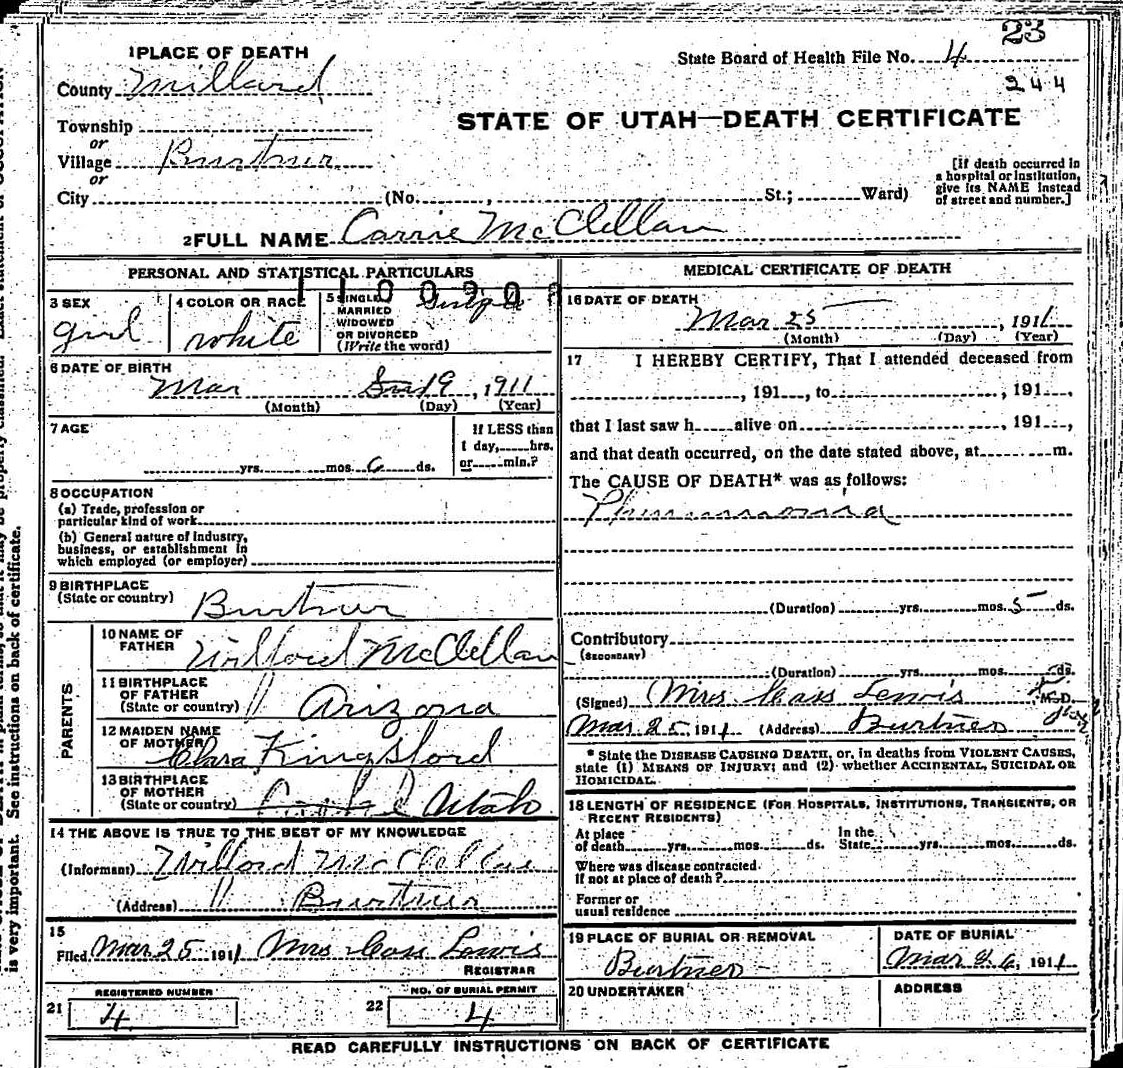 23
1 PLACE OF DEATH
State Board of Health File No. 4
County Millard
244
Township
STATE OF UTAH—DEATH CERTIFICATE
or
Village Burtner
or
City (No. , St.; Ward)
[If death occurred in
a hospital or institution,
give its NAME instead
of street and number.]
2 FULL NAME Carrie McClellan
PERSONAL AND STATISTICAL PARTICULARS
3 SEX
girl
4 COLOR OR RACE
white
5 SINGLE
MARRIED
WIDOWED
OR DIVORCED
(Write the word)
Single
6 DATE OF BIRTH
Mar 19, 1911
(Month) (Day) (Year)
7 AGE
yrs. mos. 6 ds.
If LESS than
1 day, hrs.
or min.?
8 OCCUPATION
(a) Trade, profession or
particular kind of work
(b) General nature of industry,
business, or establishment in
which employed (or employer)
9 BIRTHPLACE
(State or country)
Burtner
PARENTS
10 NAME OF
FATHER
Wilford McClellan
11 BIRTHPLACE
OF FATHER
(State or country)
" Arizona
12 MAIDEN NAME
OF MOTHER
Clara Kingsford
13 BIRTHPLACE
OF MOTHER
(State or country)
Utah
14 THE ABOVE IS TRUE TO THE BEST OF MY KNOWLEDGE
(Informant) Wilford McClellan
(Address) " Burtner
15
Filed Mar 25 1911 Mrs Cass Lewis
REGISTRAR
21 REGISTERED NUMBER
4
22 NO. OF BURIAL PERMIT
4
MEDICAL CERTIFICATE OF DEATH
16 DATE OF DEATH
Mar 25, 1911
(Month) (Day) (Year)
17 I HEREBY CERTIFY, That I attended deceased from
, 191 , to , 191 ,
that I last saw h alive on , 191 ,
and that death occurred, on the date stated above, at m.
The CAUSE OF DEATH* was as follows:
(Duration) yrs. mos. 5 ds.
Contributory
(SECONDARY)
(Duration) yrs. mos. ds.
(Signed) Mrs. Cass Lewis M.D.
Mar 25 1911 (Address) Burtner
* State the DISEASE CAUSING DEATH, or, in deaths from VIOLENT CAUSES,
state (1) MEANS OF INJURY; and (2) whether ACCIDENTAL, SUICIDAL OR
HOMICIDAL.
18 LENGTH OF RESIDENCE (FOR HOSPITALS, INSTITUTIONS, TRANSIENTS, OR
RECENT RESIDENTS)
At place
of death yrs. mos. ds.
In the
State yrs. mos. ds.
Where was disease contracted
if not at place of death?
Former or
usual residence
19 PLACE OF BURIAL OR REMOVAL
Burtner
DATE OF BURIAL
Mar 26, 1911
20 UNDERTAKER
ADDRESS
READ CAREFULLY INSTRUCTIONS ON BACK OF CERTIFICATE
is very important. See instructions on back of certificate.